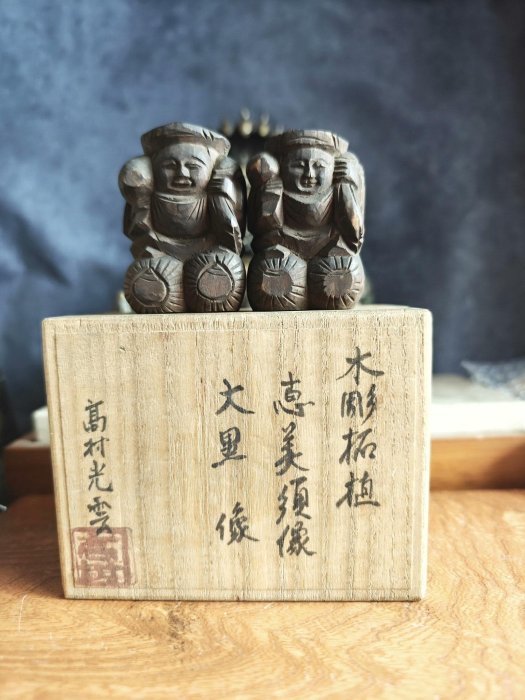 木彫拓植
恵美須像
大黒像
高村光雲